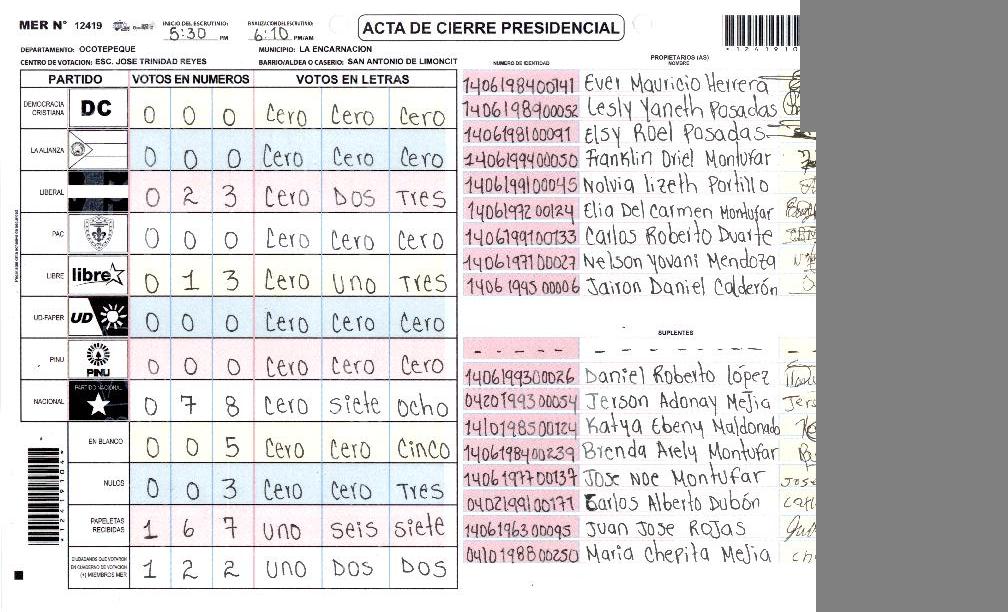 MER N° 12419
INICIO DEL ESCRUTINIO: 5:30 PM
FINALIZACION DEL ESCRUTINIO: 6:10 PM/AM
ACTA DE CIERRE PRESIDENCIAL
DEPARTAMENTO: OCOTEPEQUE
MUNICIPIO: LA ENCARNACION
CENTRO DE VOTACION: ESC. JOSE TRINIDAD REYES
BARRIO/ALDEA O CASERIO: SAN ANTONIO DE LIMONCIT
PARTIDO VOTOS EN NUMEROS VOTOS EN LETRAS
DEMOCRACIA CRISTIANA DC 0 0 0 Cero Cero Cero
LA ALIANZA 0 0 0 Cero Cero Cero
LIBERAL 0 2 3 Cero Dos Tres
PAC 0 0 0 Cero Cero Cero
LIBRE libre 0 1 3 Cero uno Tres
UD-FAPER UD 0 0 0 Cero Cero Cero
PINU PINU 0 0 0 Cero Cero Cero
NACIONAL PARTIDO NACIONAL 0 7 8 Cero siete ocho
EN BLANCO 0 0 5 Cero Cero Cinco
NULOS 0 0 3 Cero Cero Tres
PAPELETAS RECIBIDAS 1 6 7 uno seis siete
CIUDADANOS QUE VOTARON EN CUADERNO DE VOTACION (+) MIEMBROS MER 1 2 2 uno Dos Dos
NUMERO DE IDENTIDAD
PROPIETARIOS (AS)
NOMBRE
1406198400141 Ever Mauricio Herrera
1406198900052 Lesly Yaneth Posadas
1406198100091 Elsy Roel Posadas
1406199400050 Franklin Oriel Montufar
1406199100045 Nolvia lizeth Portillo
1406197200124 Elia Del Carmen Montufar
1406199100133 Carlos Roberto Duarte
1406197100027 Nelson Yovani Mendoza
1406199500006 Jairon Daniel Calderón
SUPLENTES
1406199300026 Daniel Roberto López
0420199300054 Jerson Adonay Mejia
1410198500124 Katya Ebeny Maldonado
1406198400239 Brenda Arely Montufar
1406197700137 Jose Noe Montufar
0402199100171 Carlos Alberto Dubón
1406196300095 Juan Jose Rojas
0410198800250 Maria Chepita Mejia